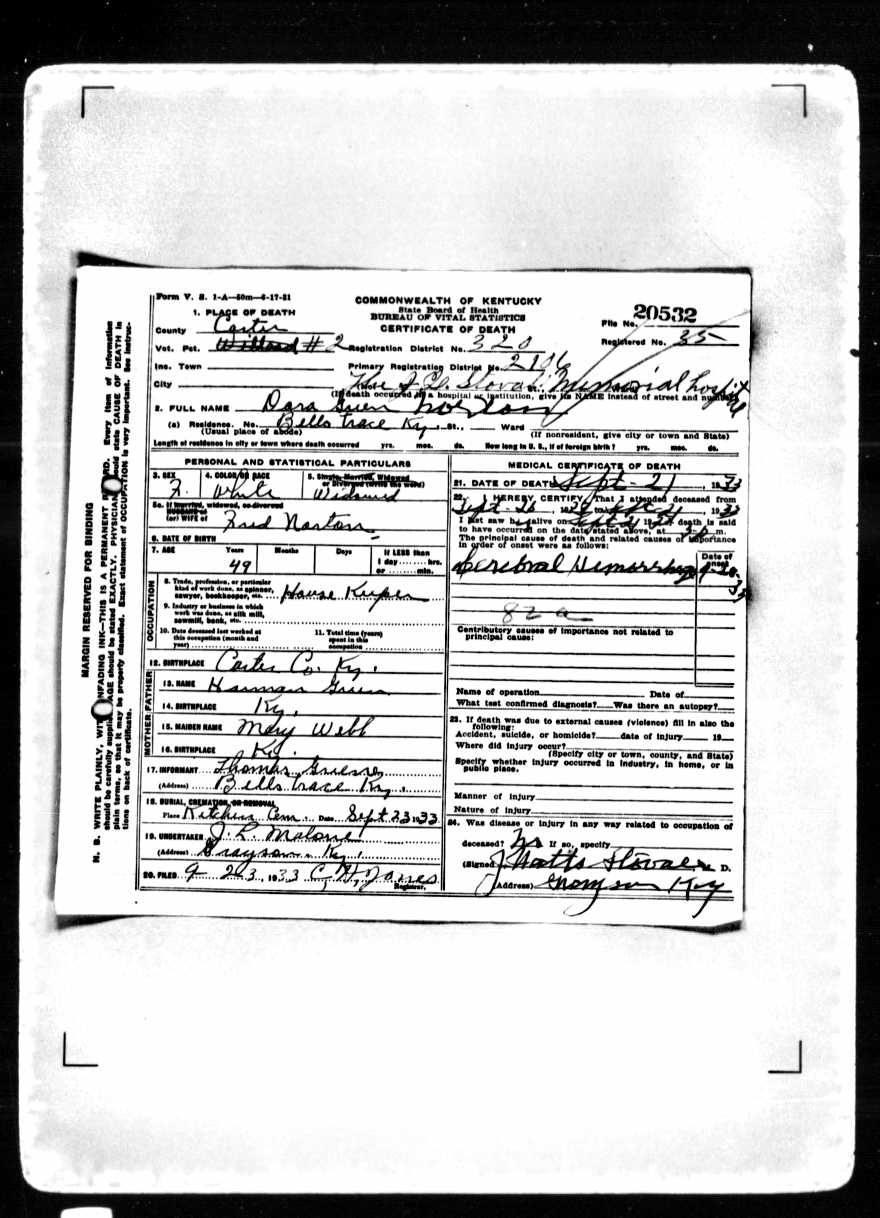 Form V. S. 1-A—50m—6-17-31
COMMONWEALTH OF KENTUCKY
State Board of Health
BUREAU OF VITAL STATISTICS
CERTIFICATE OF DEATH
File No. 20532
Registered No. 35
1. PLACE OF DEATH
County Carter
Vot. Pct. Willard # 2 Registration District No. 320
Inc. Town Primary Registration District No. 2196
City The J. Q. Stovall Memorial hospital
(If death occurred in a hospital or institution, give its NAME instead of street and number)
2. FULL NAME Dora Green Norton
(a) Residence. No. Bells trace Ky. St., Ward
(Usual place of abode) (If nonresident, give city or town and State)
Length of residence in city or town where death occurred yrs. mos. ds. How long in U. S., if of foreign birth? yrs. mos. ds.
PERSONAL AND STATISTICAL PARTICULARS
3. SEX F. 4. COLOR OR RACE White 5. Single, Married, Widowed or Divorced (write the word) Widowed
5a. If married, widowed, or divorced
HUSBAND of
(or) WIFE of Fred Norton
6. DATE OF BIRTH
7. AGE Years Months Days If LESS than
49 1 day........hrs.
or ........min.
OCCUPATION
8. Trade, profession, or particular
kind of work done, as spinner,
sawyer, bookkeeper, etc. House Keeper
9. Industry or business in which
work was done, as silk mill,
sawmill, bank, etc.
10. Date deceased last worked at
this occupation (month and
year)
11. Total time (years)
spent in this
occupation
12. BIRTHPLACE Carter Co. Ky.
FATHER
13. NAME Harman Green
14. BIRTHPLACE Ky.
MOTHER
15. MAIDEN NAME Mary Webb
16. BIRTHPLACE Ky.
17. INFORMANT Thomas
(Address) Bells trace Ky.
18. BURIAL, CREMATION, OR REMOVAL
Place Kitchen Cem. Date Sept 23 1933
19. UNDERTAKER J. L. Malone
(Address) Grayson Ky.
20. FILED 9 23, 1933 C. H. Jones
Registrar.
MEDICAL CERTIFICATE OF DEATH
21. DATE OF DEATH Sept - 21 1933
22. I HEREBY CERTIFY, That I attended deceased from
Sept - 20, 19 to Sept 21, 1933
I last saw h alive on Sept 21 19 death is said
to have occurred on the date stated above, at m.
The principal cause of death and related causes of importance
in order of onset were as follows:
Date of onset
Cerebral Hemorrhage 9-20-33
82 a
Contributory causes of importance not related to
principal cause:
Name of operation Date of
What test confirmed diagnosis? Was there an autopsy?
23. If death was due to external causes (violence) fill in also the
following:
Accident, suicide, or homicide? date of injury 19
Where did injury occur?
(Specify city or town, county, and State)
Specify whether injury occurred in industry, in home, or in
public place.
Manner of injury
Nature of injury
24. Was disease or injury in any way related to occupation of
deceased? No If so, specify
(Signed) J Watts Stovall M. D.
(Address) Grayson Ky
MARGIN RESERVED FOR BINDING
N. B. WRITE PLAINLY, WITH UNFADING INK—THIS IS A PERMANENT RECORD. Every item of information
should be carefully supplied. AGE should be stated EXACTLY. PHYSICIANS should state CAUSE OF DEATH in
plain terms, so that it may be properly classified. Exact statement of OCCUPATION is very important. See instruc-
tions on back of certificate.